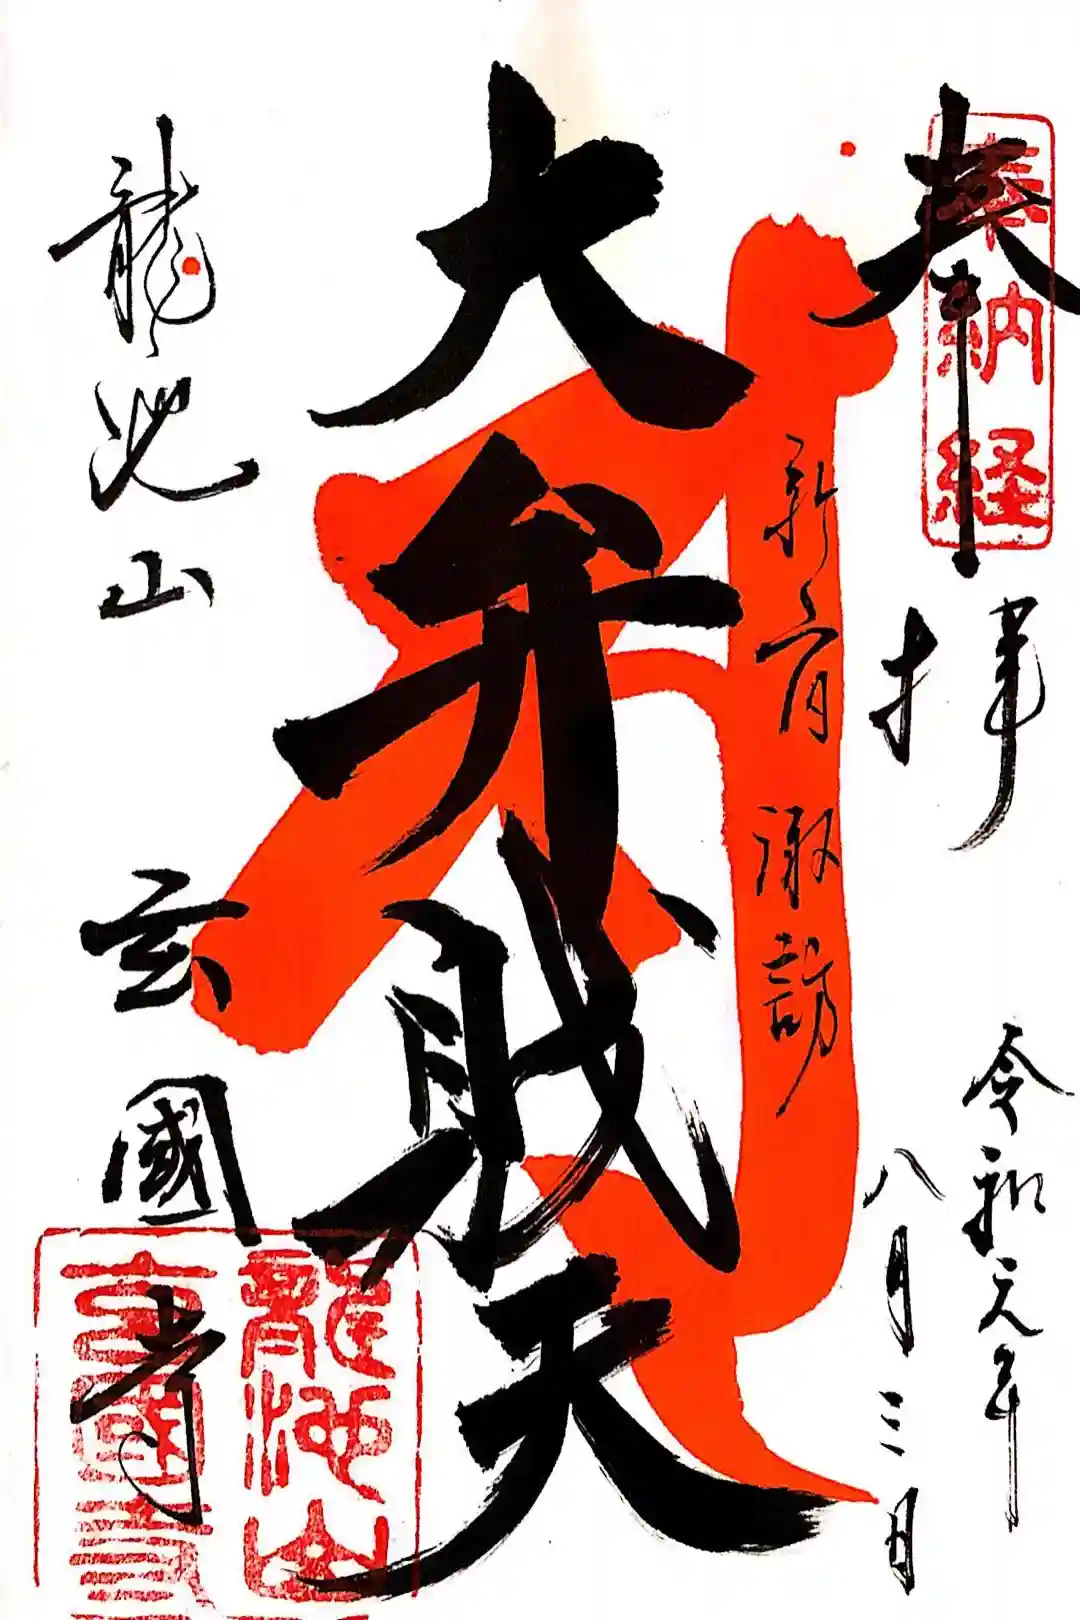 奉納経
奉拝
令和元年
八月三日
新宿 諏訪
大弁財天
龍池山
玄國寺
龍池山
玄國